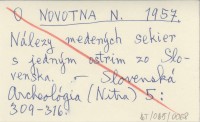 O NOVOTNA N. 1957.
Nálezy medených sekier
s jedným ostrím zo Slo-
venska. - Slovenská
Archeológia (Nitra) 5:
309-316.